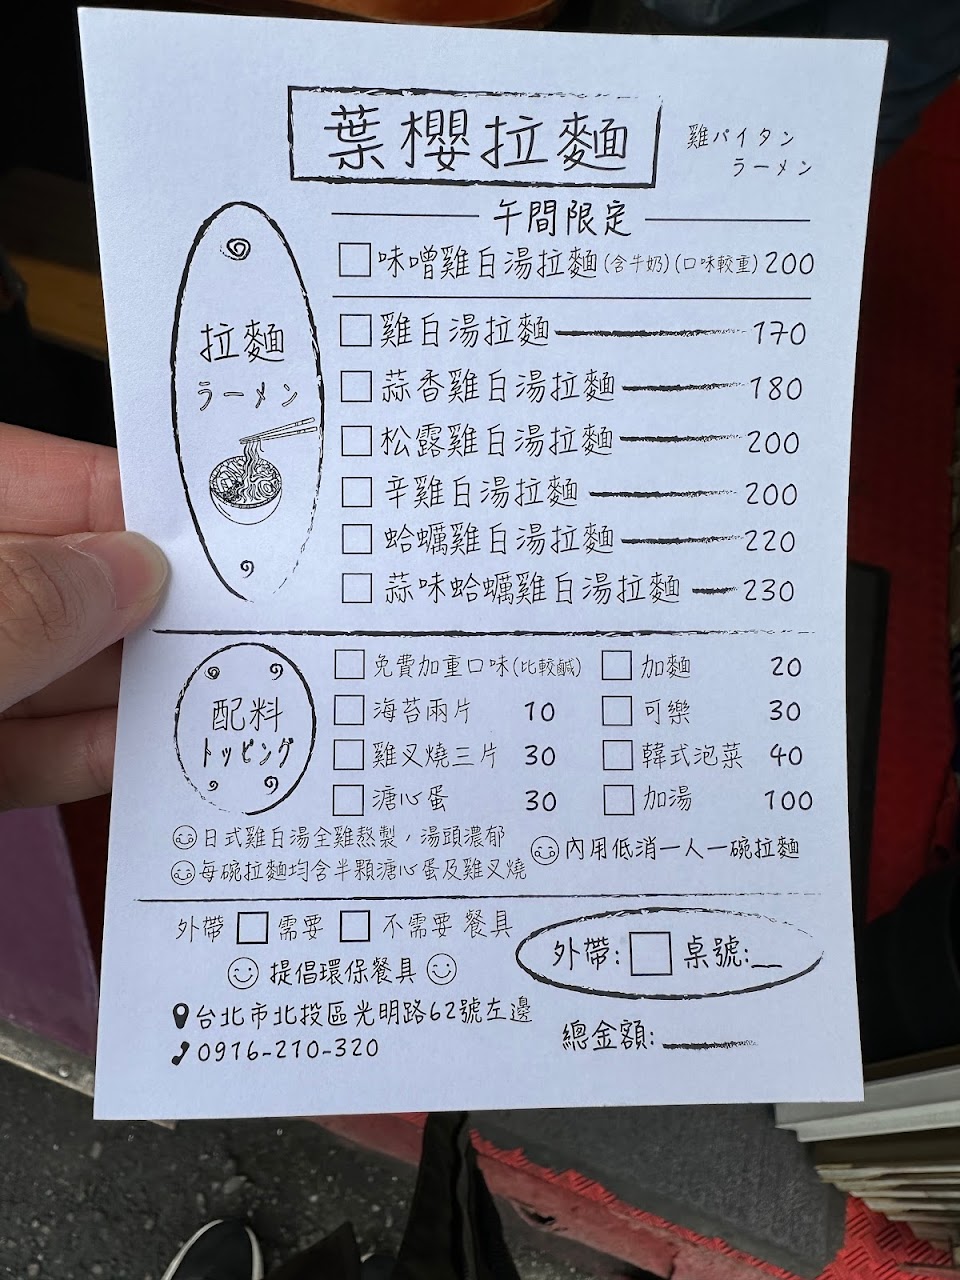 葉櫻拉麵
雞パイタン
ラーメン
午間限定
味噌雞白湯拉麵(含牛奶)(口味較重)200
拉麵
ラーメン
雞白湯拉麵 170
蒜香雞白湯拉麵 180
松露雞白湯拉麵 200
辛雞白湯拉麵 200
蛤蠣雞白湯拉麵 220
蒜味蛤蠣雞白湯拉麵 230
配料
トッピング
免費加重口味(比較鹹)
海苔兩片 10
雞叉燒三片 30
溏心蛋 30
加麵 20
可樂 30
韓式泡菜 40
加湯 100
日式雞白湯全雞熬製，湯頭濃郁
每碗拉麵均含半顆溏心蛋及雞叉燒
內用低消一人一碗拉麵
外帶 需要 不需要 餐具
提倡環保餐具
外帶: 桌號:__
台北市北投區光明路62號左邊
0976-270-320
總金額: